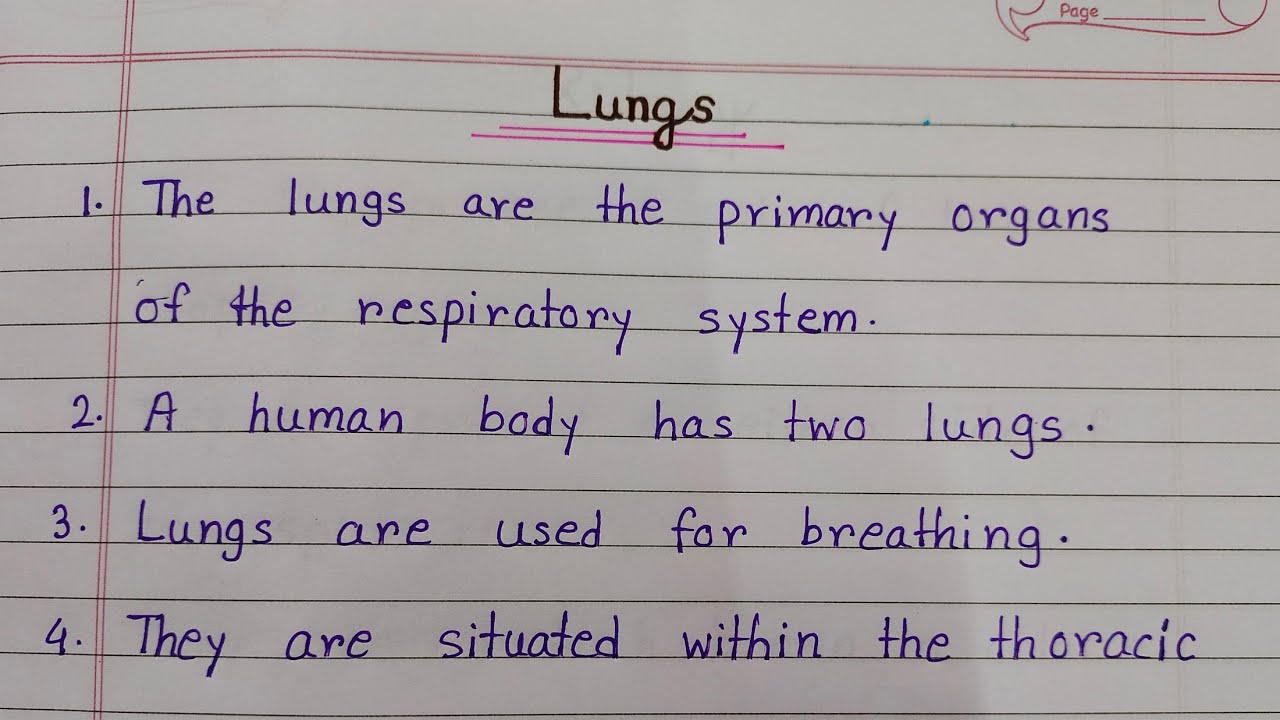 Page
Lungs
1. The lungs are the primary organs
of the respiratory system.
2. A human body has two lungs.
3. Lungs are used for breathing.
4. They are situated within the thoracic